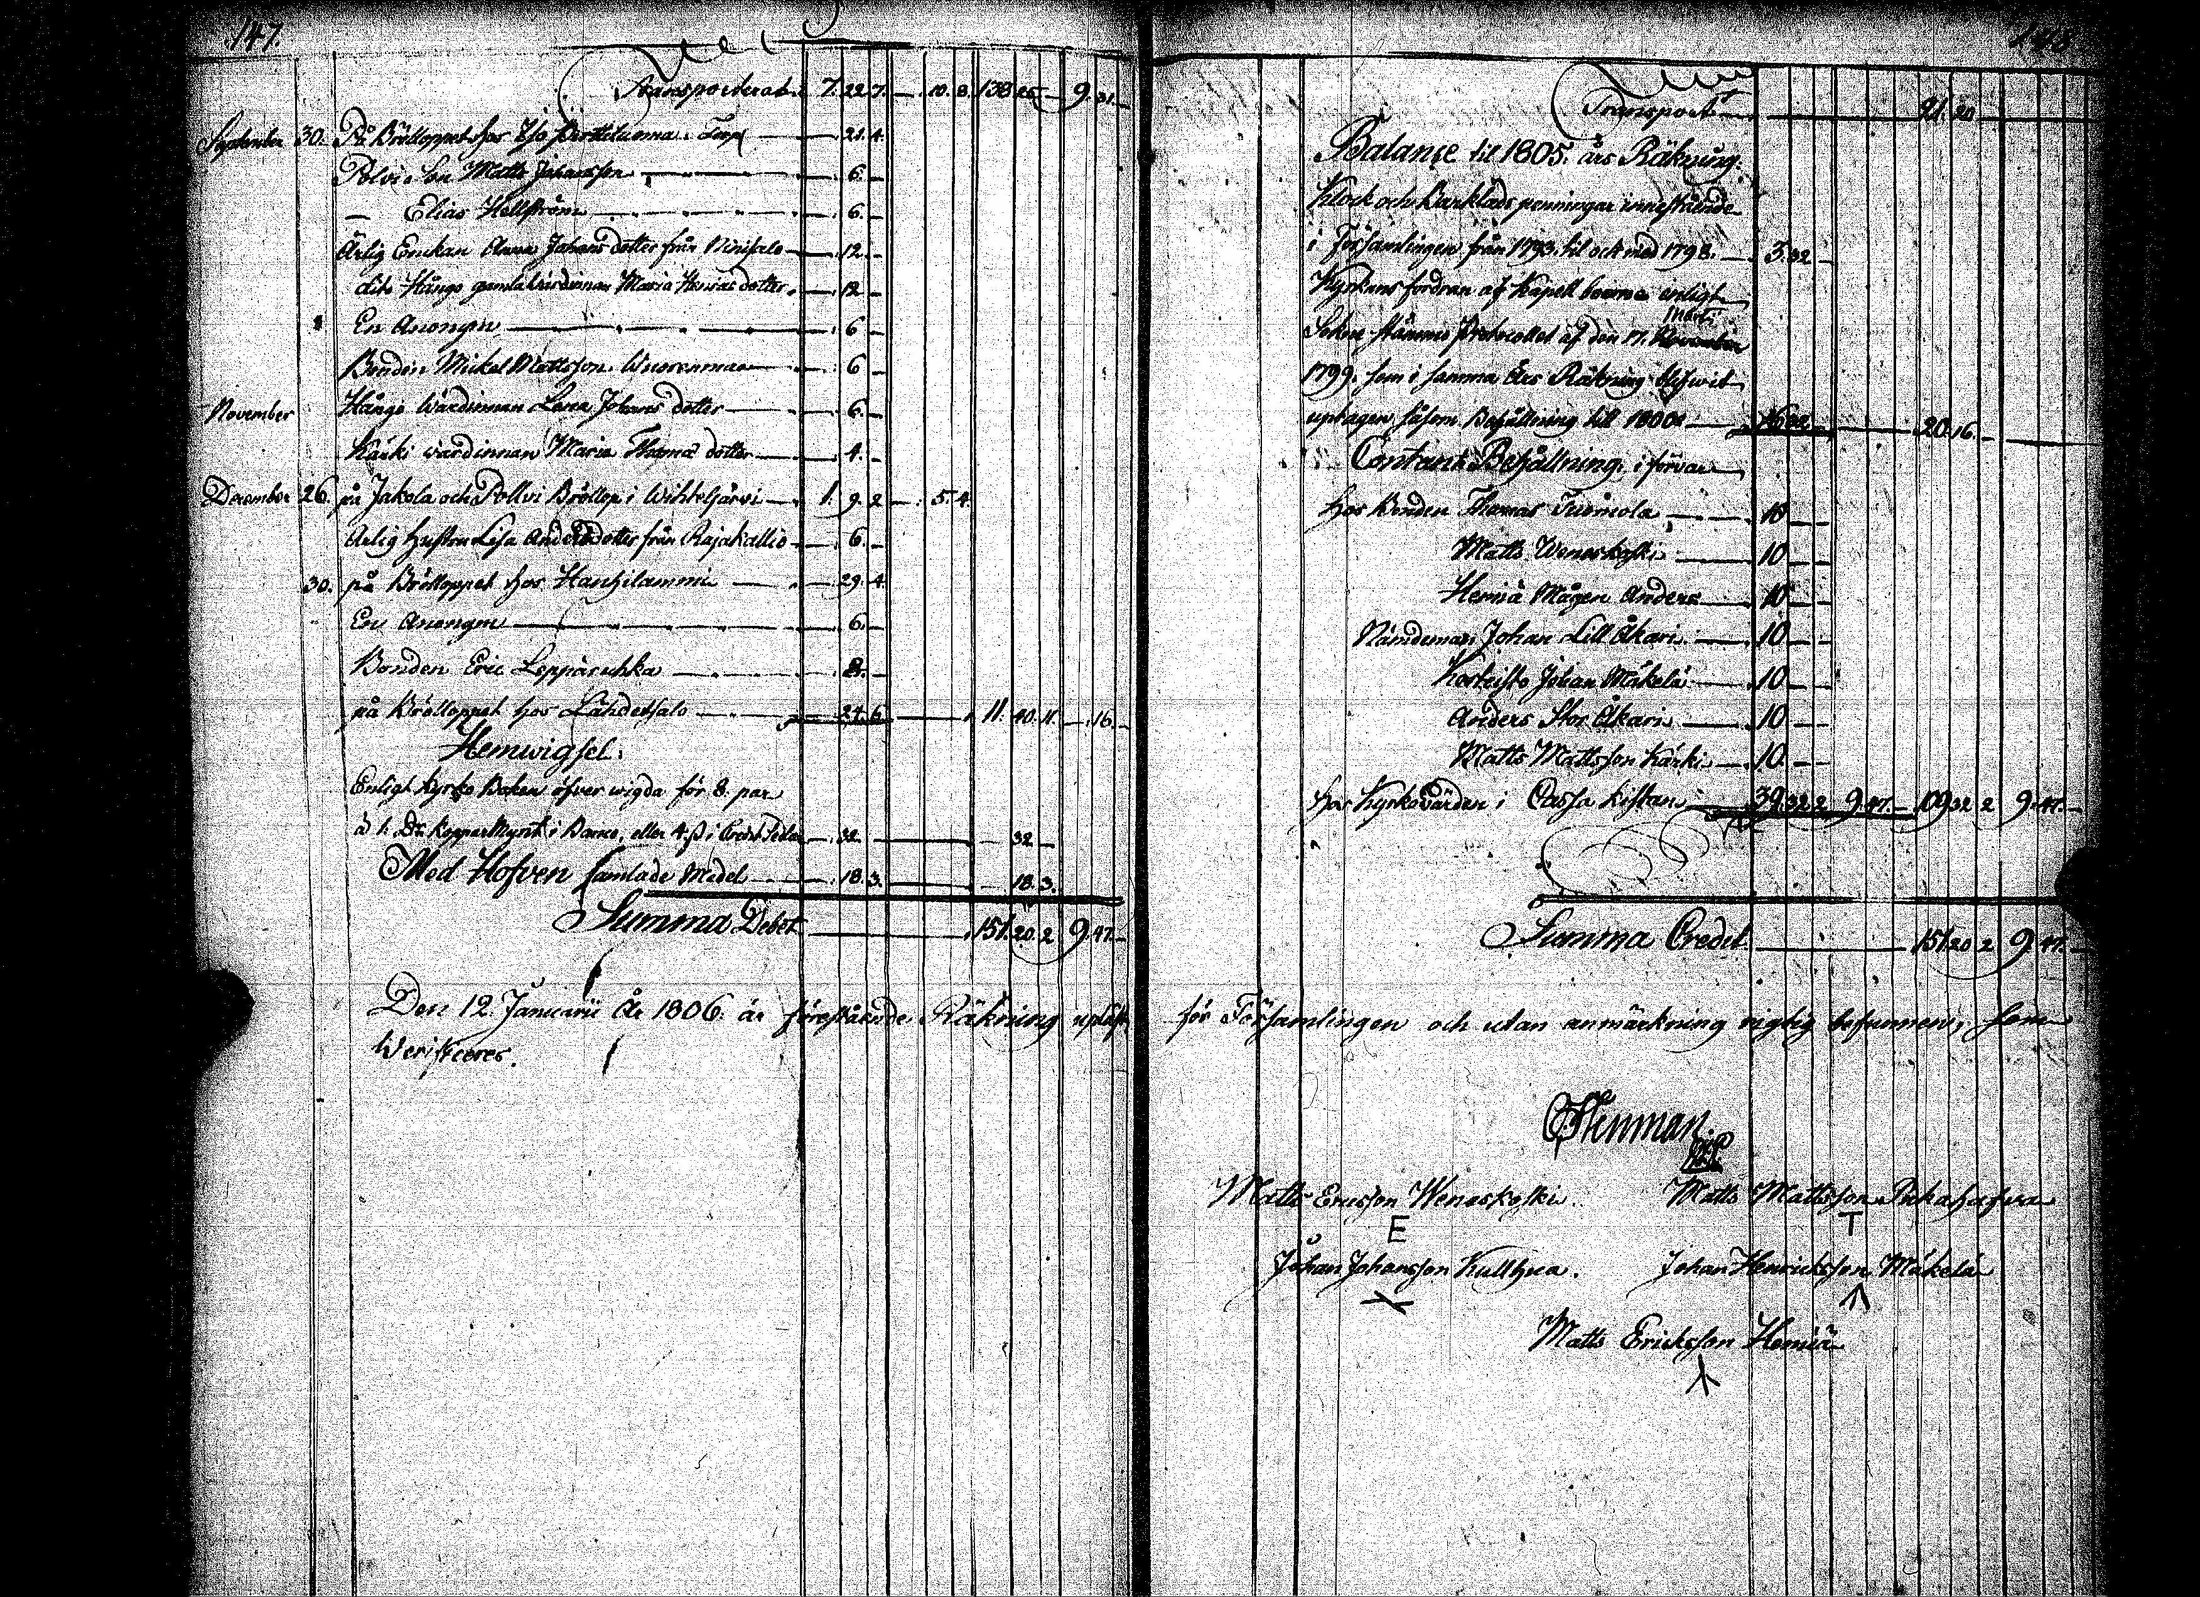 147.
Transporterat 7. 22. 7. — 10. 8. 138 25 — 9. 31. —
September 30. På Brölloppet hos Yso Perttilamma Torp — 21. 4.
Polvi Son Matts Johansson — 6. —
— Elias Hellström — 6. —
Ärlig Enckan Anna Johans dotter från Niinisalo — 12. —
dito Hångo gamla Wärdinnan Maria Henrics dotter — 12 —
En Anonym — 6 —
Bonden Mickel Mattsson Wuorenmaa — 6 —
November Hångo Wärdinnan Lena Johans dotter — 6 —
Kärki wärdinnan Maria Thomæ dotter — 4. —
December 26. på Jakola och Pollvi Bröllop i Wihteljärvi — 1. 9. 2 — 5. 4.
Ärlig Hustru Lisa Andersdotter från Rajakallio — 6. —
30. på Brölloppet hos Hanhilammi — 29. 4.
En Anonym — 6. —
Bonden Eric Leppäruhka — 8. —
på Brölloppet hos Lähdetsalo — 24. 6 — 11. 40. 11. — 16. —
Hemwigsel.
Enligt Kyrko Boken öfver wigda för 8. par
à 1. Dr. KopparMynt i Banco, eller 4. ß i Credit Sedlar — 32 — 32 —
Med Hofven samlade Medel — 18. 3. — 18. 3.
Summa Debet — 151. 20. 2 9. 47. —
Den 12. Januarii År 1806. är föreståënde Räkning upläst
Werificeres.
148
Transport — 21. 20
Balance til 1805. års Räkning.
Klock och Barklåds penningar inneståënde
i Församlingen från 1793. til och med 1798. — 3. 32 —
Kyrkans fordran af Kapell boerne enligt
Martii
Sockne stämmo Protocollet af den 17. November
1799. som i samma års Räkning blifwit
uptagen såsom Behållning till 1800 — 16 32 — 20. 16. —
Contant Behållning i förvar
hos Bonden Thomas Tuomola — 10 — —
Matts Weneskoski — 10 — —
Hemiä Mågen Anders — 10 — —
Nämdeman Johan Lill Åkari — 10 — —
Kosteisto Johan Mäkelä — 10 — —
Anders Stor Åkari — 10 — —
Matts Mattsson Kärki — 10. — —
hos Kyrkovärden i Cassa Kistan 39. 32 2 9. 47. — 109 32 2 9. 47. —
Summa Credit — 151 20 2 9. 47. —
för Församlingen och utan anmärkning rigtig befunnen; som
CStenman.
Matts Ericsson Weneskoski. Matts Mattsson
E T
Johan Johansson Kullhua. Johan Henricksson Mäkelä
Matts Ericksson Hemiä